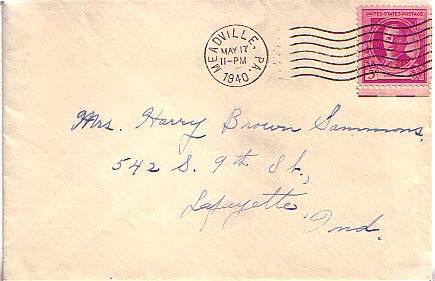 MEADVILLE, PA.
MAY 17
11-PM
1940
UNITED STATES POSTAGE
Mrs. Harry Brown Sammons.
542 S. 9th St.,
Lafayette
Ind.